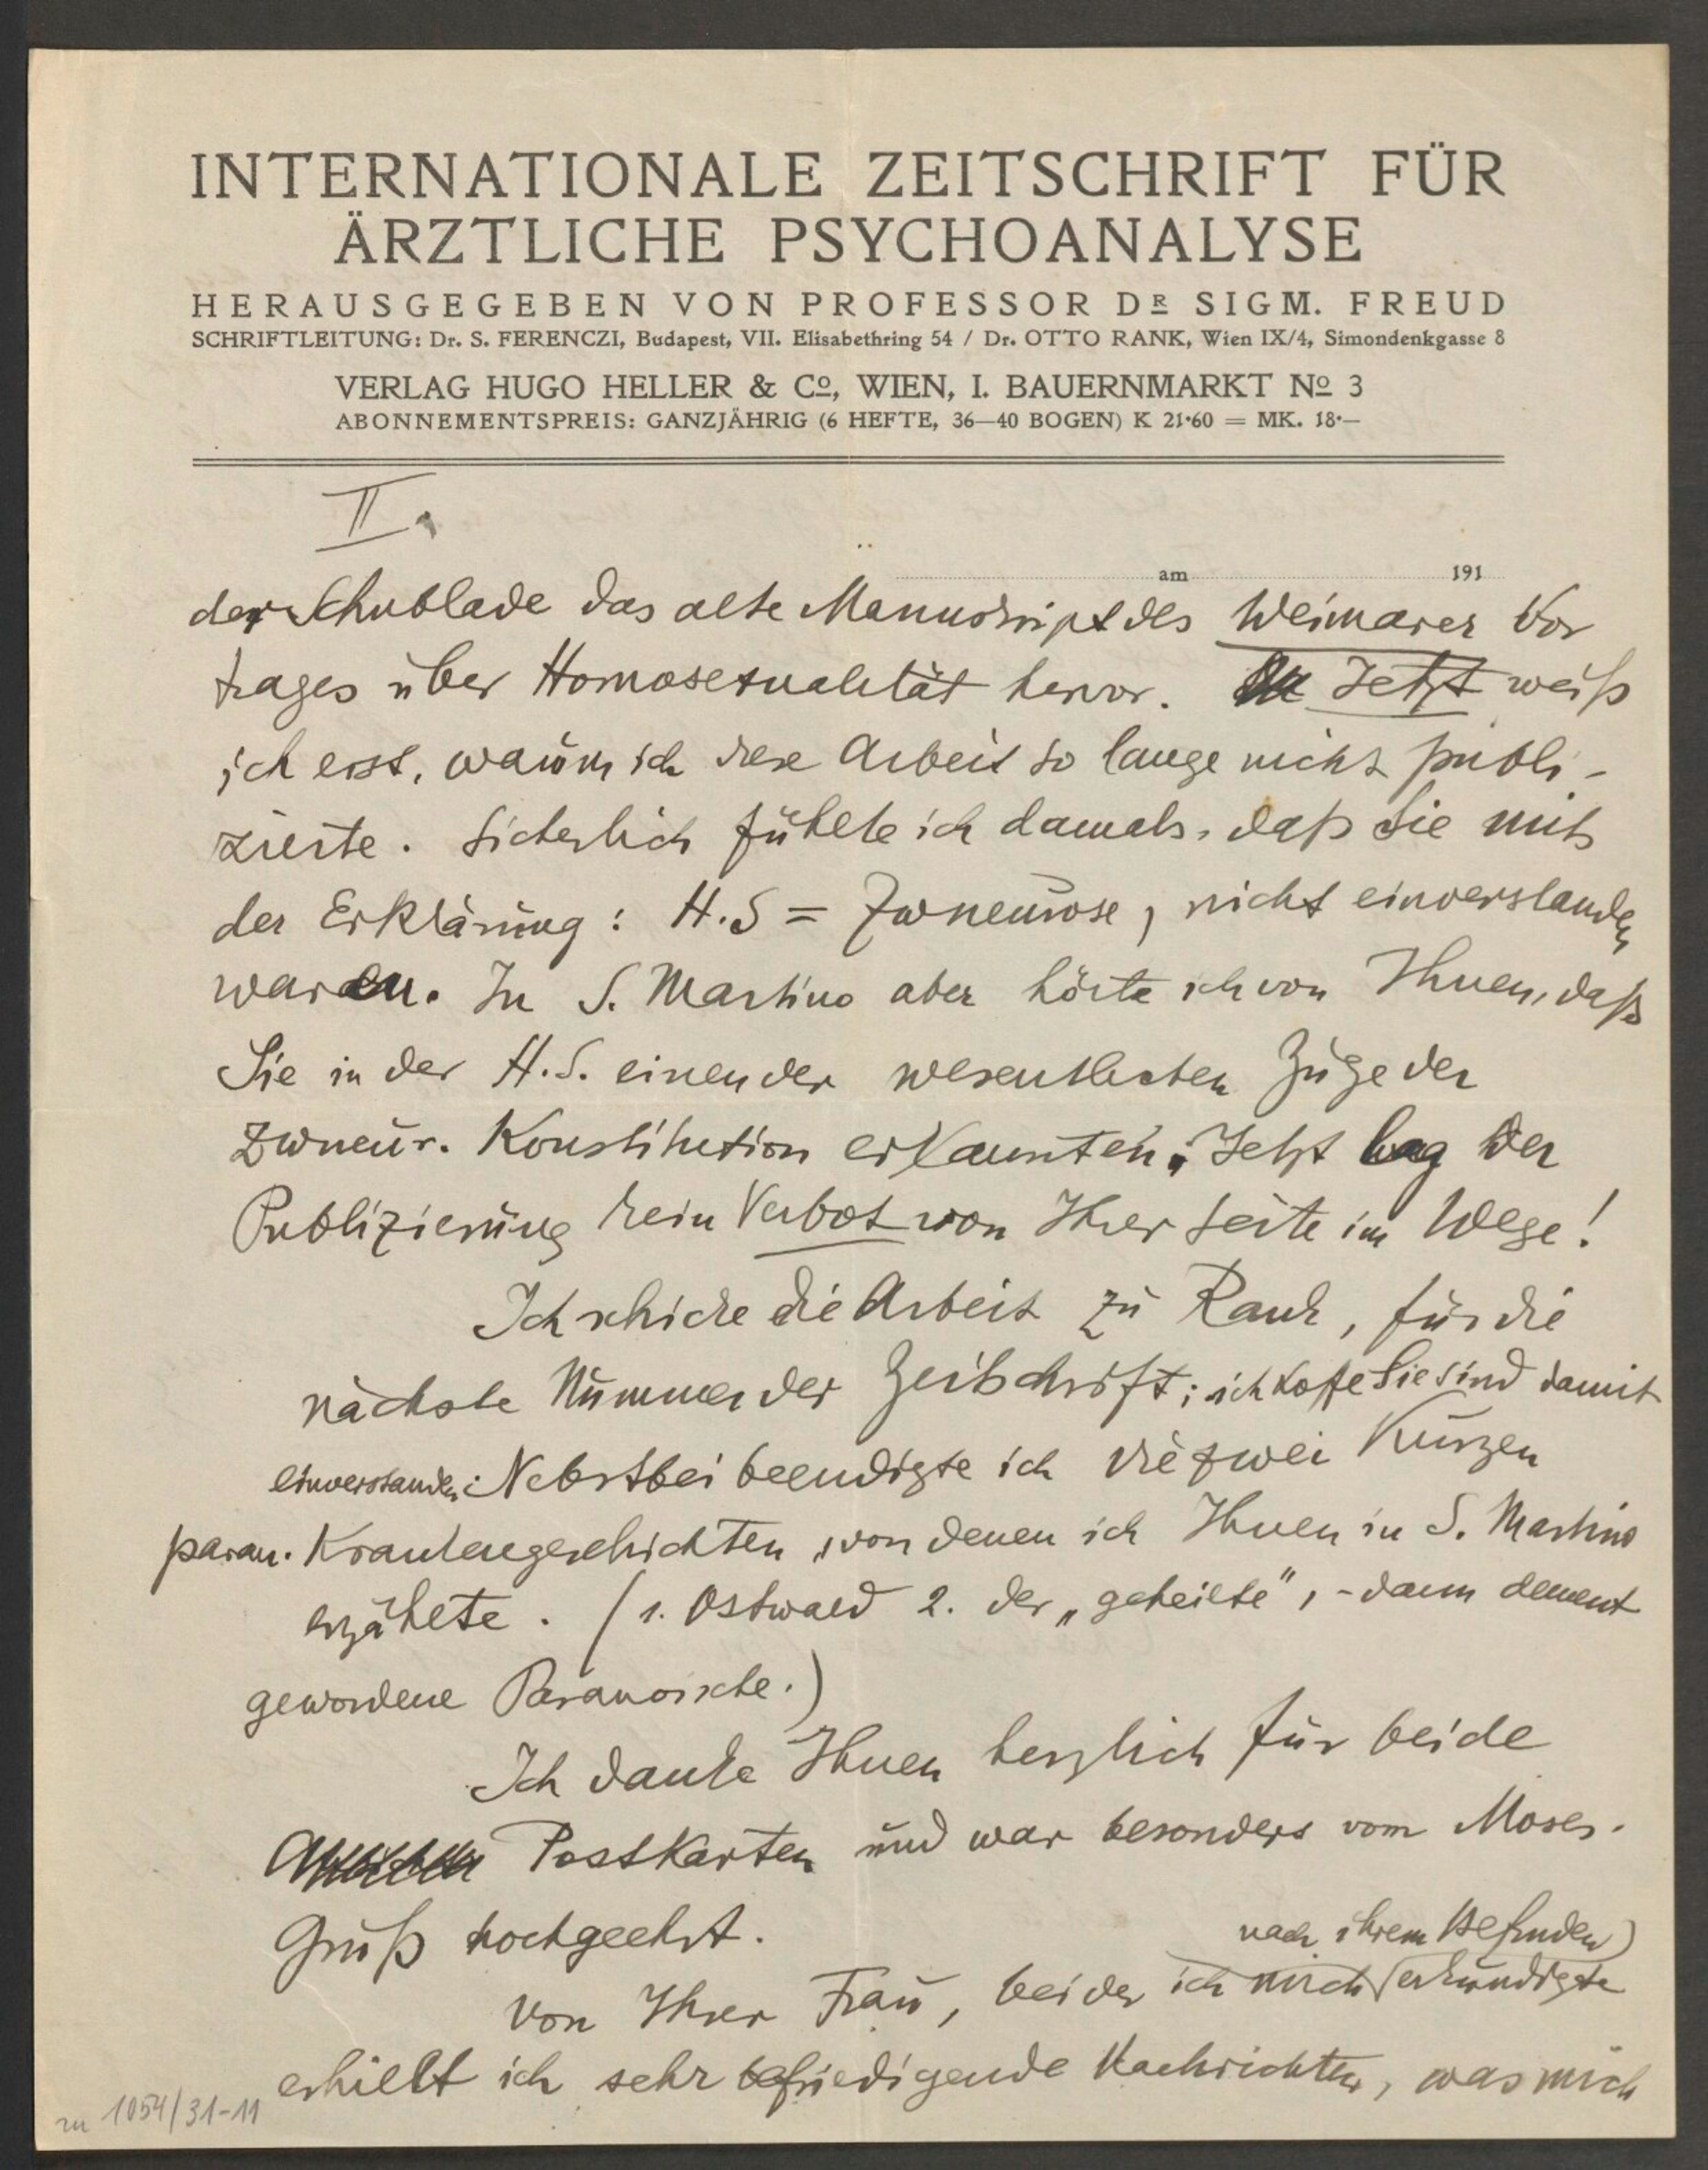 INTERNATIONALE ZEITSCHRIFT FÜR
ÄRZTLICHE PSYCHOANALYSE
HERAUSGEGEBEN VON PROFESSOR DR SIGM. FREUD
SCHRIFTLEITUNG: Dr. S. FERENCZI, Budapest, VII. Elisabethring 54 / Dr. OTTO RANK, Wien IX/4, Simondenkgasse 8
VERLAG HUGO HELLER & Co, WIEN, I. BAUERNMARKT No 3
ABONNEMENTSPREIS: GANZJÄHRIG (6 HEFTE, 36—40 BOGEN) K 21·60 = MK. 18·—
II.
am 191
der Schublade das alte Manuskript des Weimarer Vor
trages über Homosexualität hervor. Jetzt weiß
ich erst, warum ich diese Arbeit so lange nicht publi-
zierte. Sicherlich fühlte ich damals, daß Sie mit
der Erklärung: H.S = Zwneurose, nicht einverstanden
waren. In S. Martino aber hörte ich von Ihnen, daß
Sie in der H.S. einen der wesentlichsten Züge der
Zwneur. Konstitution erkannten. Jetzt lag der
Publizierung kein Verbot von Ihrer Seite im Wege!
Ich schicke die Arbeit zu Rank, für die
nächste Nummer der Zeitschrift; ich hoffe Sie sind damit
einverstanden. Nebstbei beendigte ich die zwei kurzen
paran. Krankengeschichten, von denen ich Ihnen in S. Martino
erzählte. (1. Ostwald 2. der „geheilte", - dann dement
gewordene Paranoische.)
Ich danke Ihnen herzlich für beide
Postkarten und war besonders vom Moses-
Gruß hochgeehrt.
nach ihrem Befinden
Von Ihrer Frau, bei der ich mich erkundigte
erhielt ich sehr befriedigende Nachrichten, was mich
zu 1054/31-11